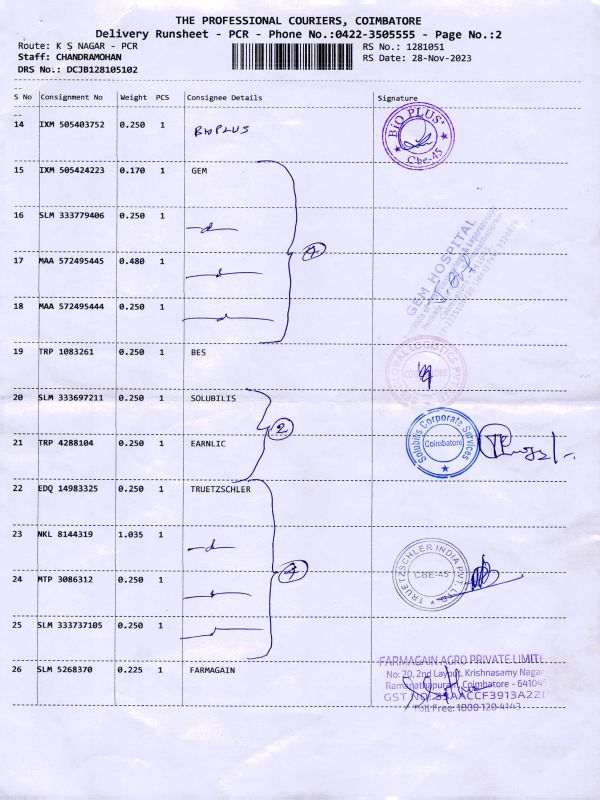 THE PROFESSIONAL COURIERS, COIMBATORE
Delivery Runsheet - PCR - Phone No.:0422-3505555 - Page No.:2
Route: K S NAGAR - PCR
RS No.: 1281051
Staff: CHANDRAMOHAN
RS Date: 28-Nov-2023
DRS No.: DCJB128105102
S No Consignment No Weight PCS Consignee Details Signature
14 IXM 505403752 0.250 1 BIO PLUS
BIO PLUS
Cbe-45
15 IXM 505424223 0.170 1 GEM
16 SLM 333779406 0.250 1
GEM HOSPITAL
17 MAA 572495445 0.480 1
18 MAA 572495444 0.250 1
19 TRP 1083261 0.250 1 BES
GLOBAL LOGISTICS PVT
20 SLM 333697211 0.250 1 SOLUBILIS
2
21 TRP 4288104 0.250 1 EARNLIC
Solubilis Corporate Services
Coimbatore
22 EDQ 14983325 0.250 1 TRUETZSCHLER
23 NKL 8144319 1.035 1
TRUETZSCHLER INDIA PVT. LTD
CBE-45
24 MTP 3086312 0.250 1
25 SLM 333737105 0.250 1
26 SLM 5268370 0.225 1 FARMAGAIN
FARMAGAIN AGRO PRIVATE LIMIT
No: 20, 2nd Layout, Krishnasamy Nagar
Ramanathapuram, Coimbatore - 64104
GST NO:33AACCF3913A2Z
Toll Free: 1800 120 4143